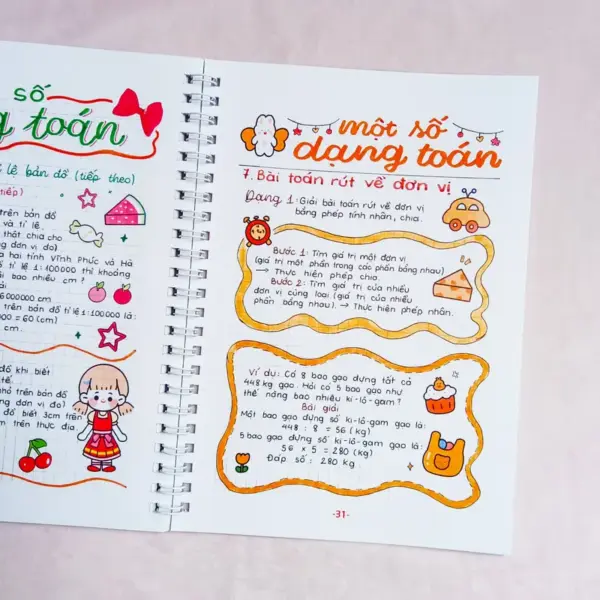 số
toán
lệ bản đồ (tiếp theo)
tiếp)
trên bản đồ
và tỉ lệ.
thật chia cho
đơn vị đo)
hai tỉnh Vĩnh Phúc và Hà
tỉ lệ 1:100000 thì khoảng
bao nhiêu cm?
6000000 cm
bản đồ tỉ lệ 1:100000 là:
000 = 60 (cm)
cm.
đồ khi biết
tế.
nhỏ trên bản đồ
đơn vị đo)
đồ biết 3cm trên
m trên thực địa.
một số
dạng toán
7. Bài toán rút về đơn vị
Dạng 1: Giải bài toán rút về đơn vị
bằng phép tính nhân, chia.
Bước 1: Tìm giá trị một đơn vị
(giá trị một phần trong các phần bằng nhau)
→ Thực hiện phép chia.
Bước 2: Tìm giá trị của nhiều
đơn vị cùng loại (giá trị của nhiều
phần bằng nhau). → Thực hiện phép nhân.
Ví dụ: Có 8 bao gạo đựng tất cả
448 kg gạo. Hỏi có 5 bao gạo như
thế nặng bao nhiêu ki-lô-gam?
Bài giải
Một bao gạo đựng số ki-lô-gam gạo là:
448 : 8 = 56 (kg)
5 bao gạo đựng số ki-lô-gam gạo là:
56 x 5 = 280 (kg)
Đáp số: 280 kg
-31-